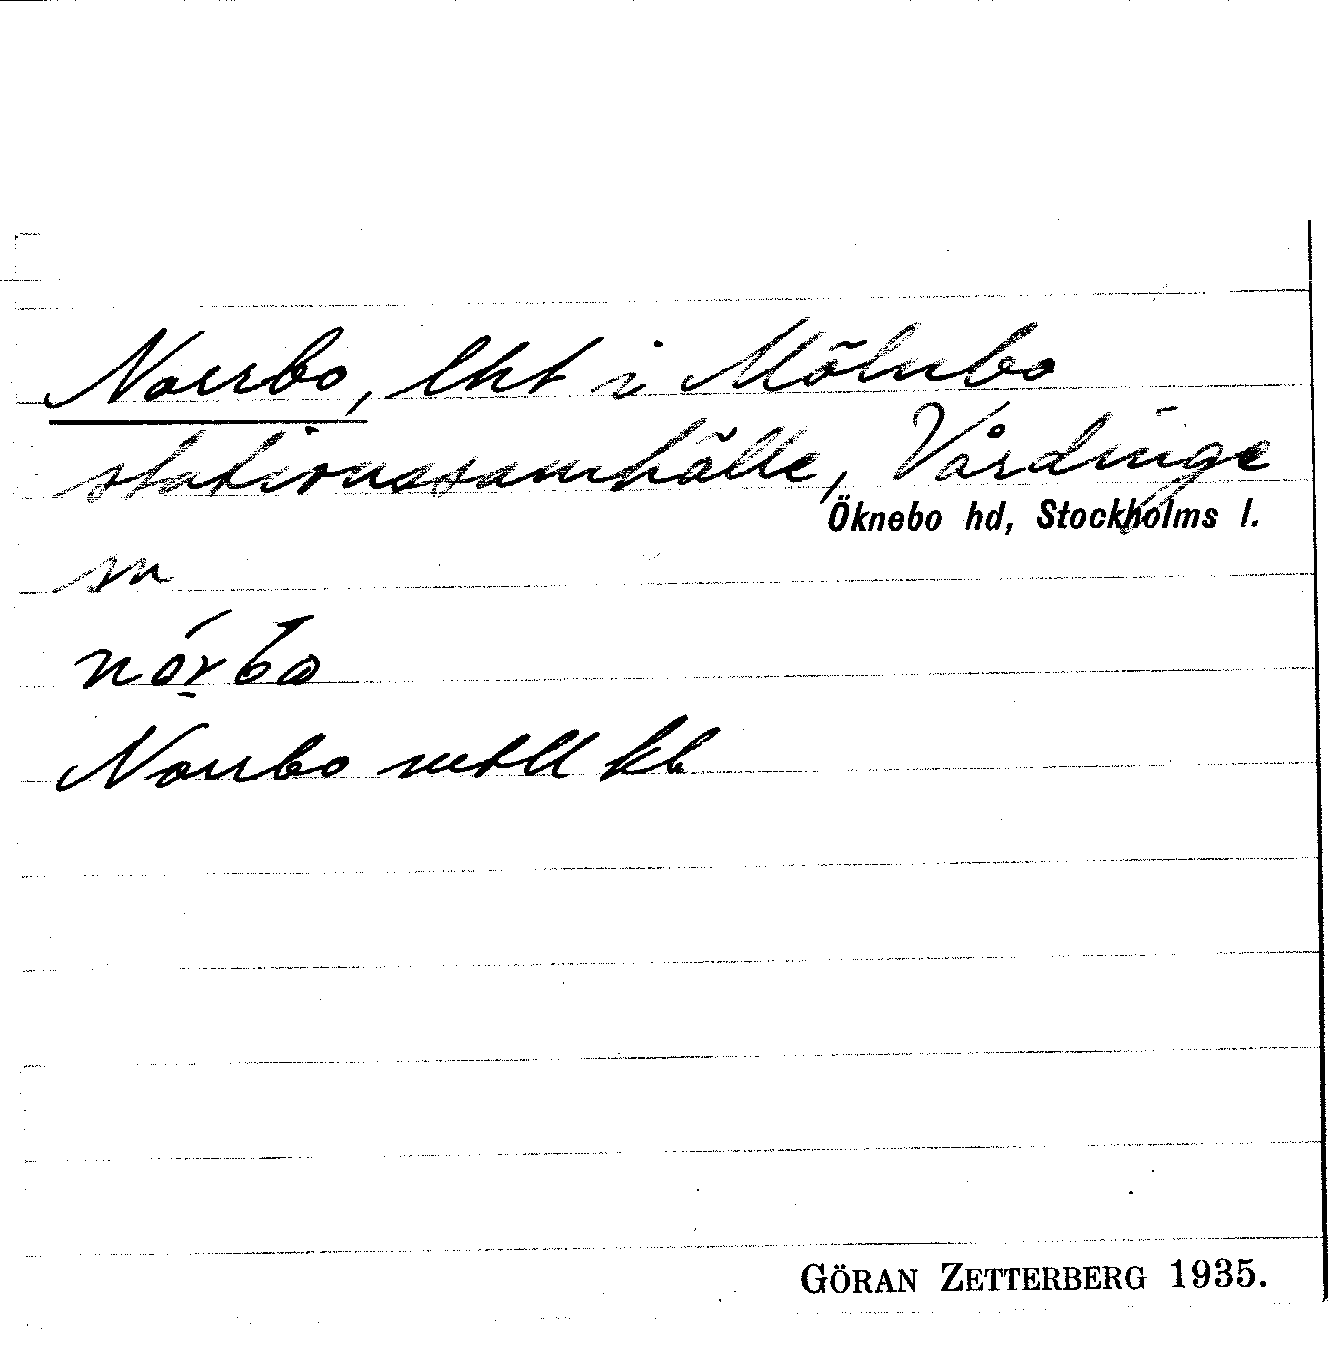 Norrbo, lht i Mölnbo
stationssamhälle, Vårdinge
Öknebo hd, Stockholms l.
sn
nórbo
Norrbo mtll kb
GÖRAN ZETTERBERG 1935.